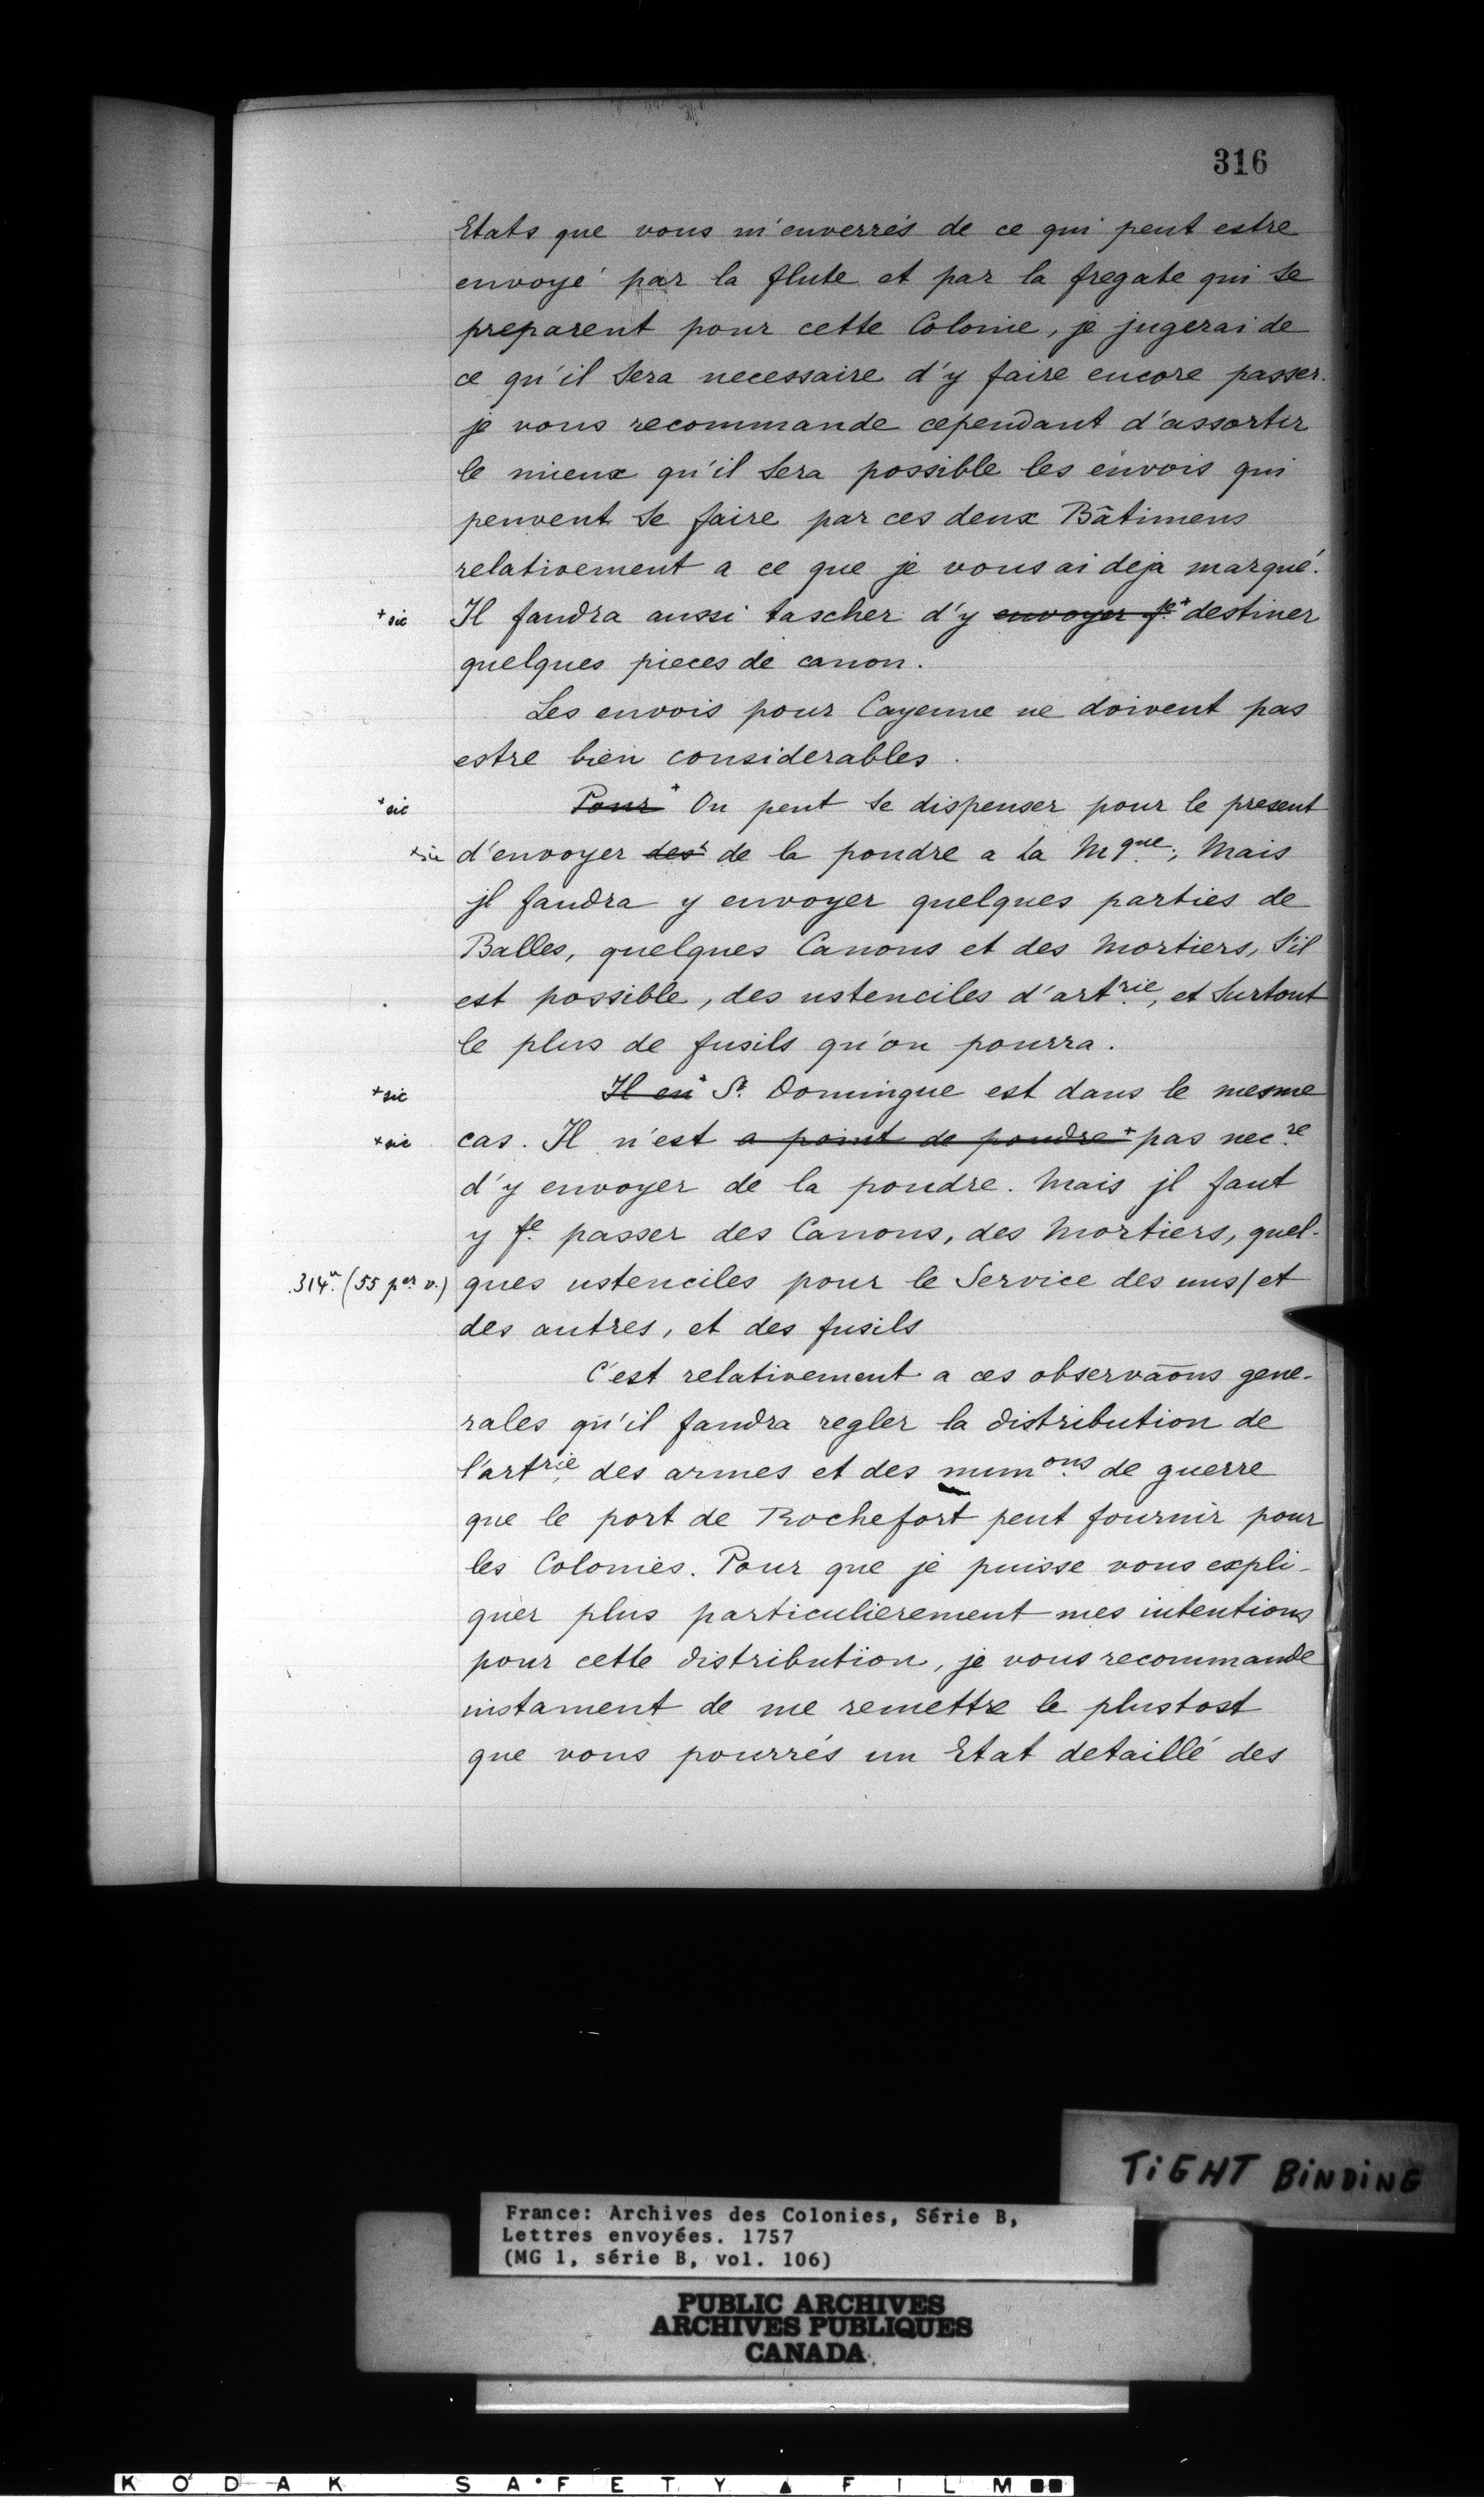 316
Etats que vous m'enverrés de ce qui peut estre
envoyé par la flute et par la fregate qui se
preparent pour cette Colonie, je jugerai de
ce qu'il sera necessaire d'y faire encore passer.
je vous recommande cependant d'assortir
le mieux qu'il sera possible les envois qui
peuvent se faire par ces deux Bâtimens
relativement a ce que je vous ai deja marqué.
+sic Il faudra aussi tascher d'y envoyer fe+ destiner
quelques pieces de canon.
Les envois pour Cayenne ne doivent pas
estre bien considerables.
+sic Pour+ On peut se dispenser pour le present
+sic d'envoyer des+ de la poudre a La Mque; Mais
jl faudra y envoyer quelques parties de
Balles, quelques Canons et des Mortiers, s'il
est possible, des ustenciles d'artrie, et surtout
le plus de fusils qu'on pourra.
+sic Il en+ St Domingue est dans le mesme
+sic cas. Il n'est a point de poudre+ pas necre
d'y envoyer de la poudre. Mais jl faut
y fe passer des Canons, des Mortiers, quel-
314. (55 per v.) ques ustenciles pour le Service des uns/et
des autres, et des fusils
C'est relativement a ces observaons gene-
rales qu'il faudra regler la distribution de
l'artrie, des armes et des munons de guerre
que le port de Rochefort peut fournir pour
les Colonies. Pour que je puisse vous expli-
quer plus particulierement mes intentions
pour cette distribution, je vous recommande
instament de me remettre le plustost
que vous pourrés un Etat detaillé des
TiGHT BiNDiNG
France: Archives des Colonies, Série B,
Lettres envoyées. 1757
(MG 1, série B, vol. 106)
PUBLIC ARCHIVES
ARCHIVES PUBLIQUES
CANADA
KODAK SAFETY FILM